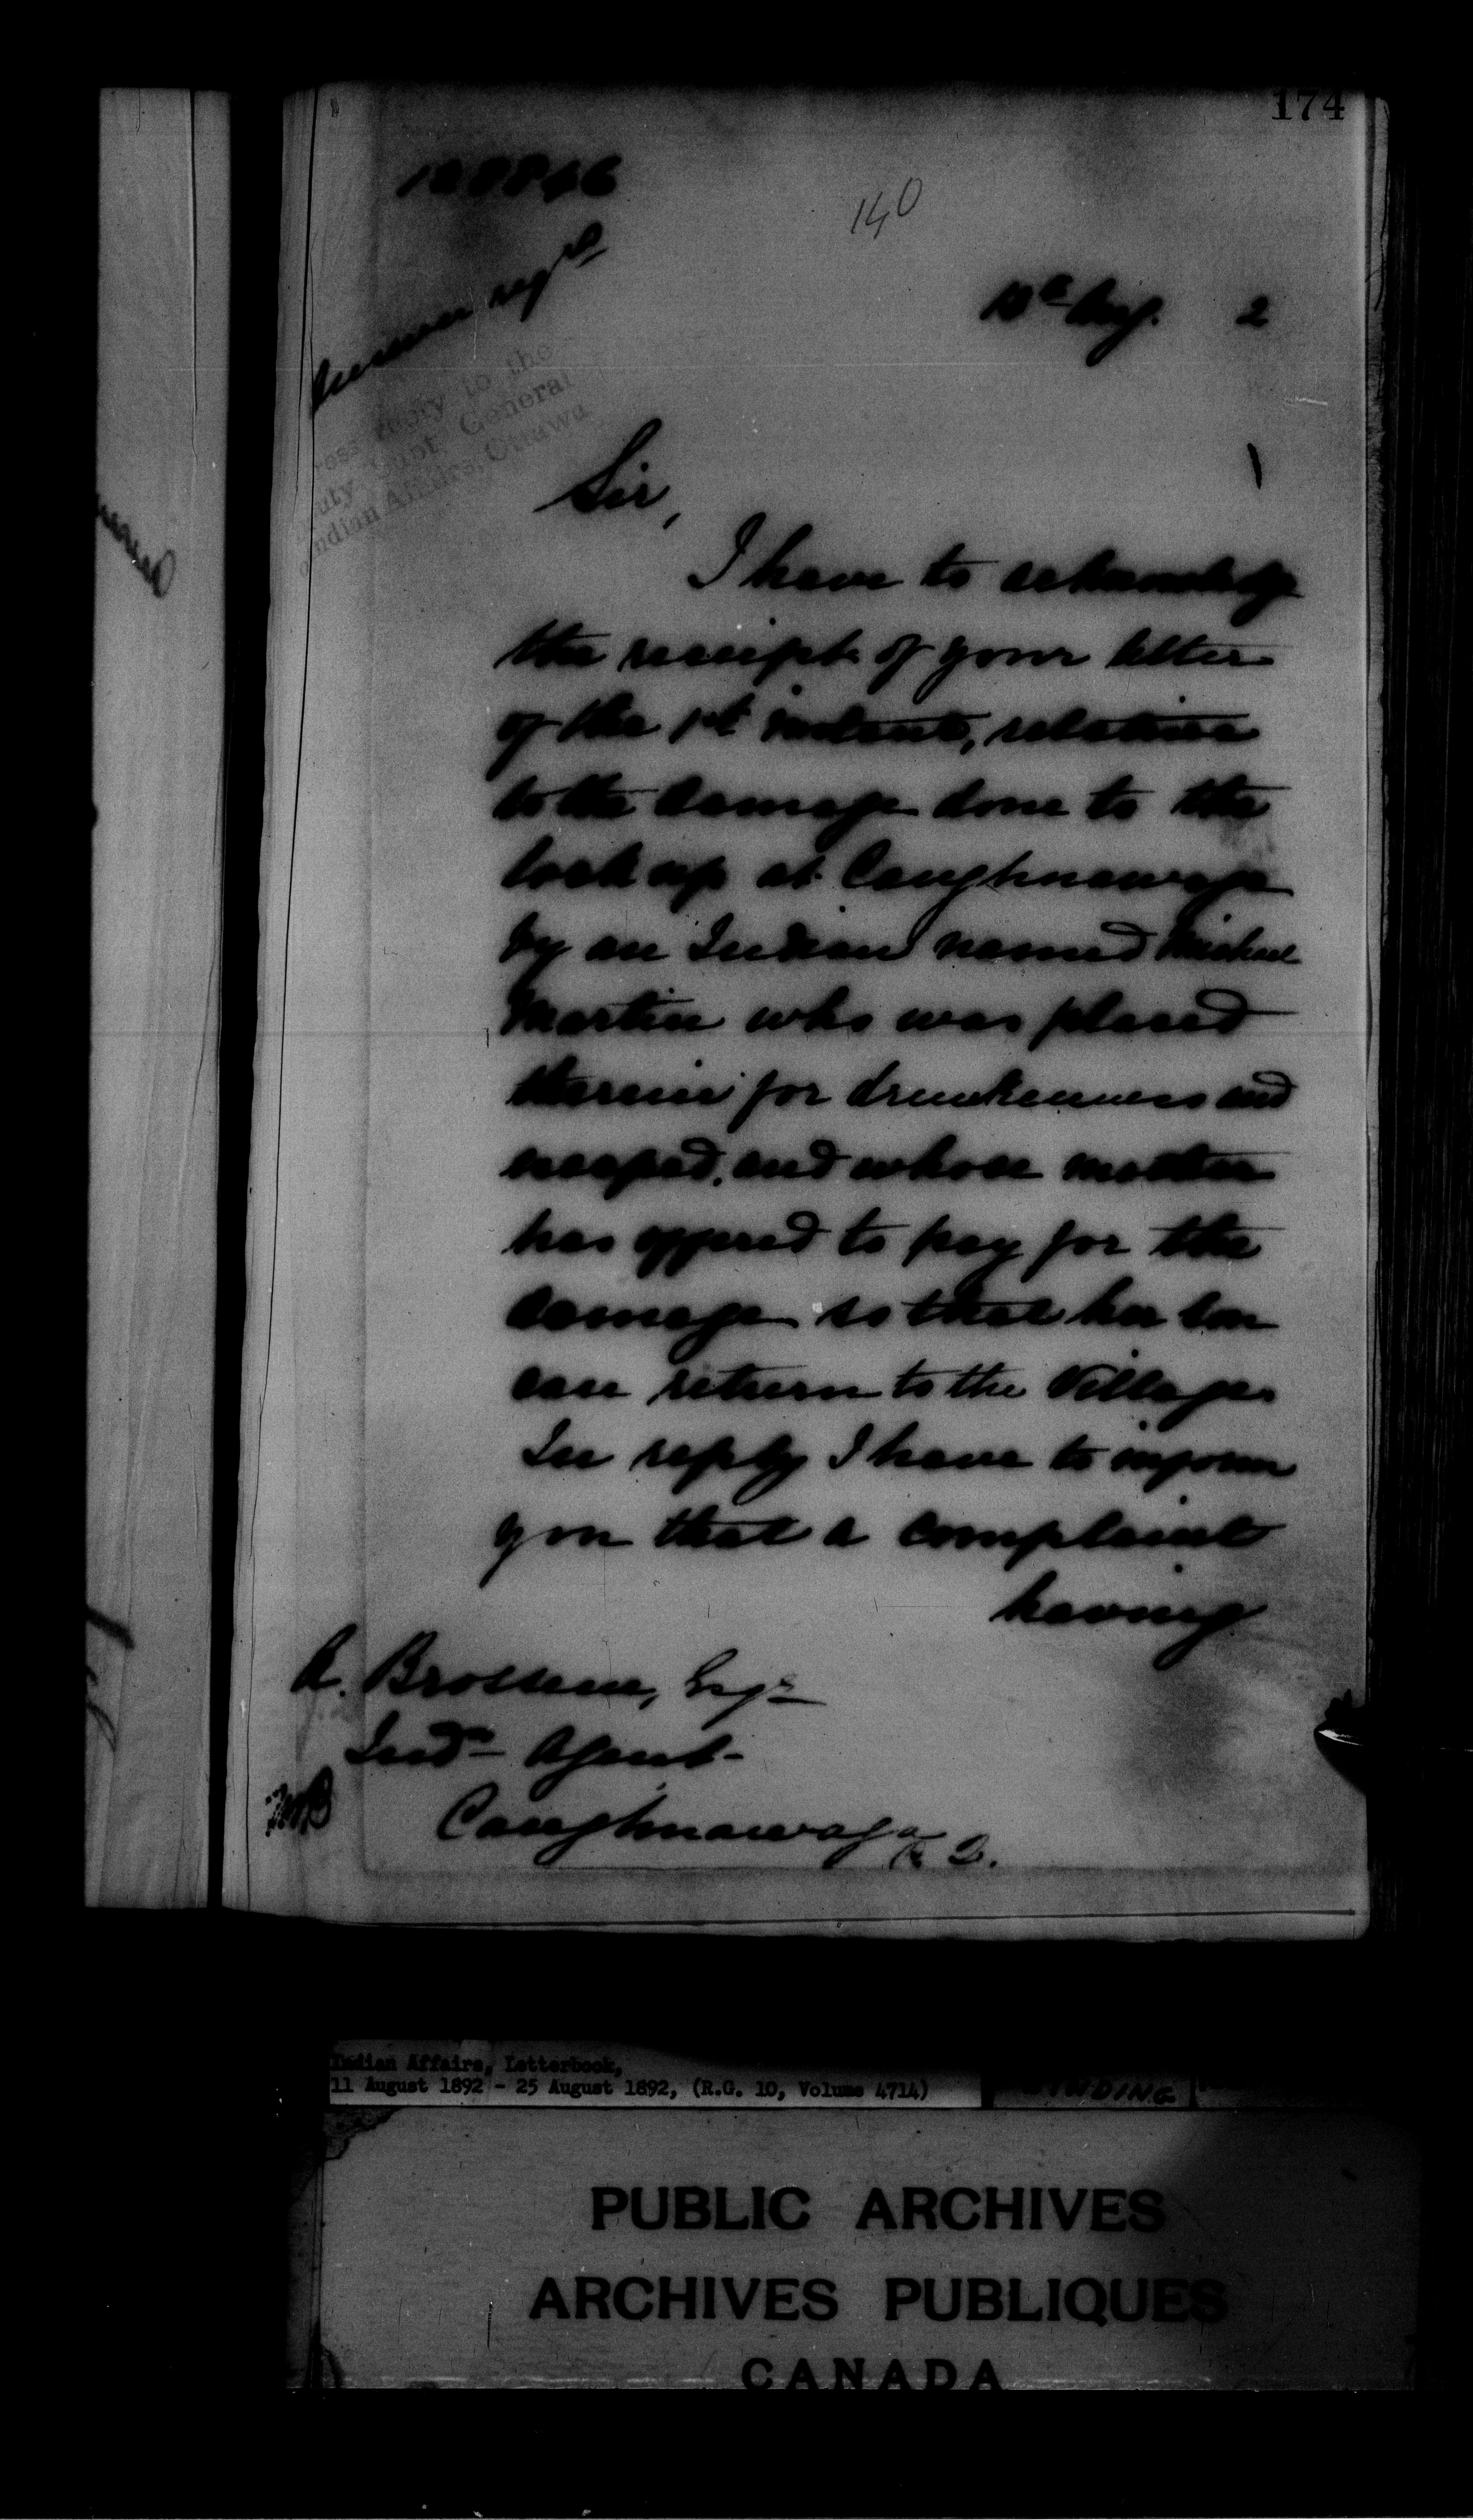 174
140
Aug. 2
Address reply to the
Deputy Supt General
of Indian Affairs, Ottawa
Sir,
I have to acknowledge
the receipt of your letter
of the 1st instant, relative
to the damage done to the
lock up at Caughnawaga
by an Indian named Michael
Martin who was placed
therein for drunkenness and
escaped, and whose mother
has offered to pay for the
damage so that her son
can return to the Village.
In reply I have to inform
you that a complaint
having
A. Brosseau, Esqr
Indn Agent
Caughnawaga P.Q.
Indian Affairs, Letterbook,
11 August 1892 - 25 August 1892, (R.G. 10, Volume 4714)
BINDING
PUBLIC ARCHIVES
ARCHIVES PUBLIQUES
CANADA